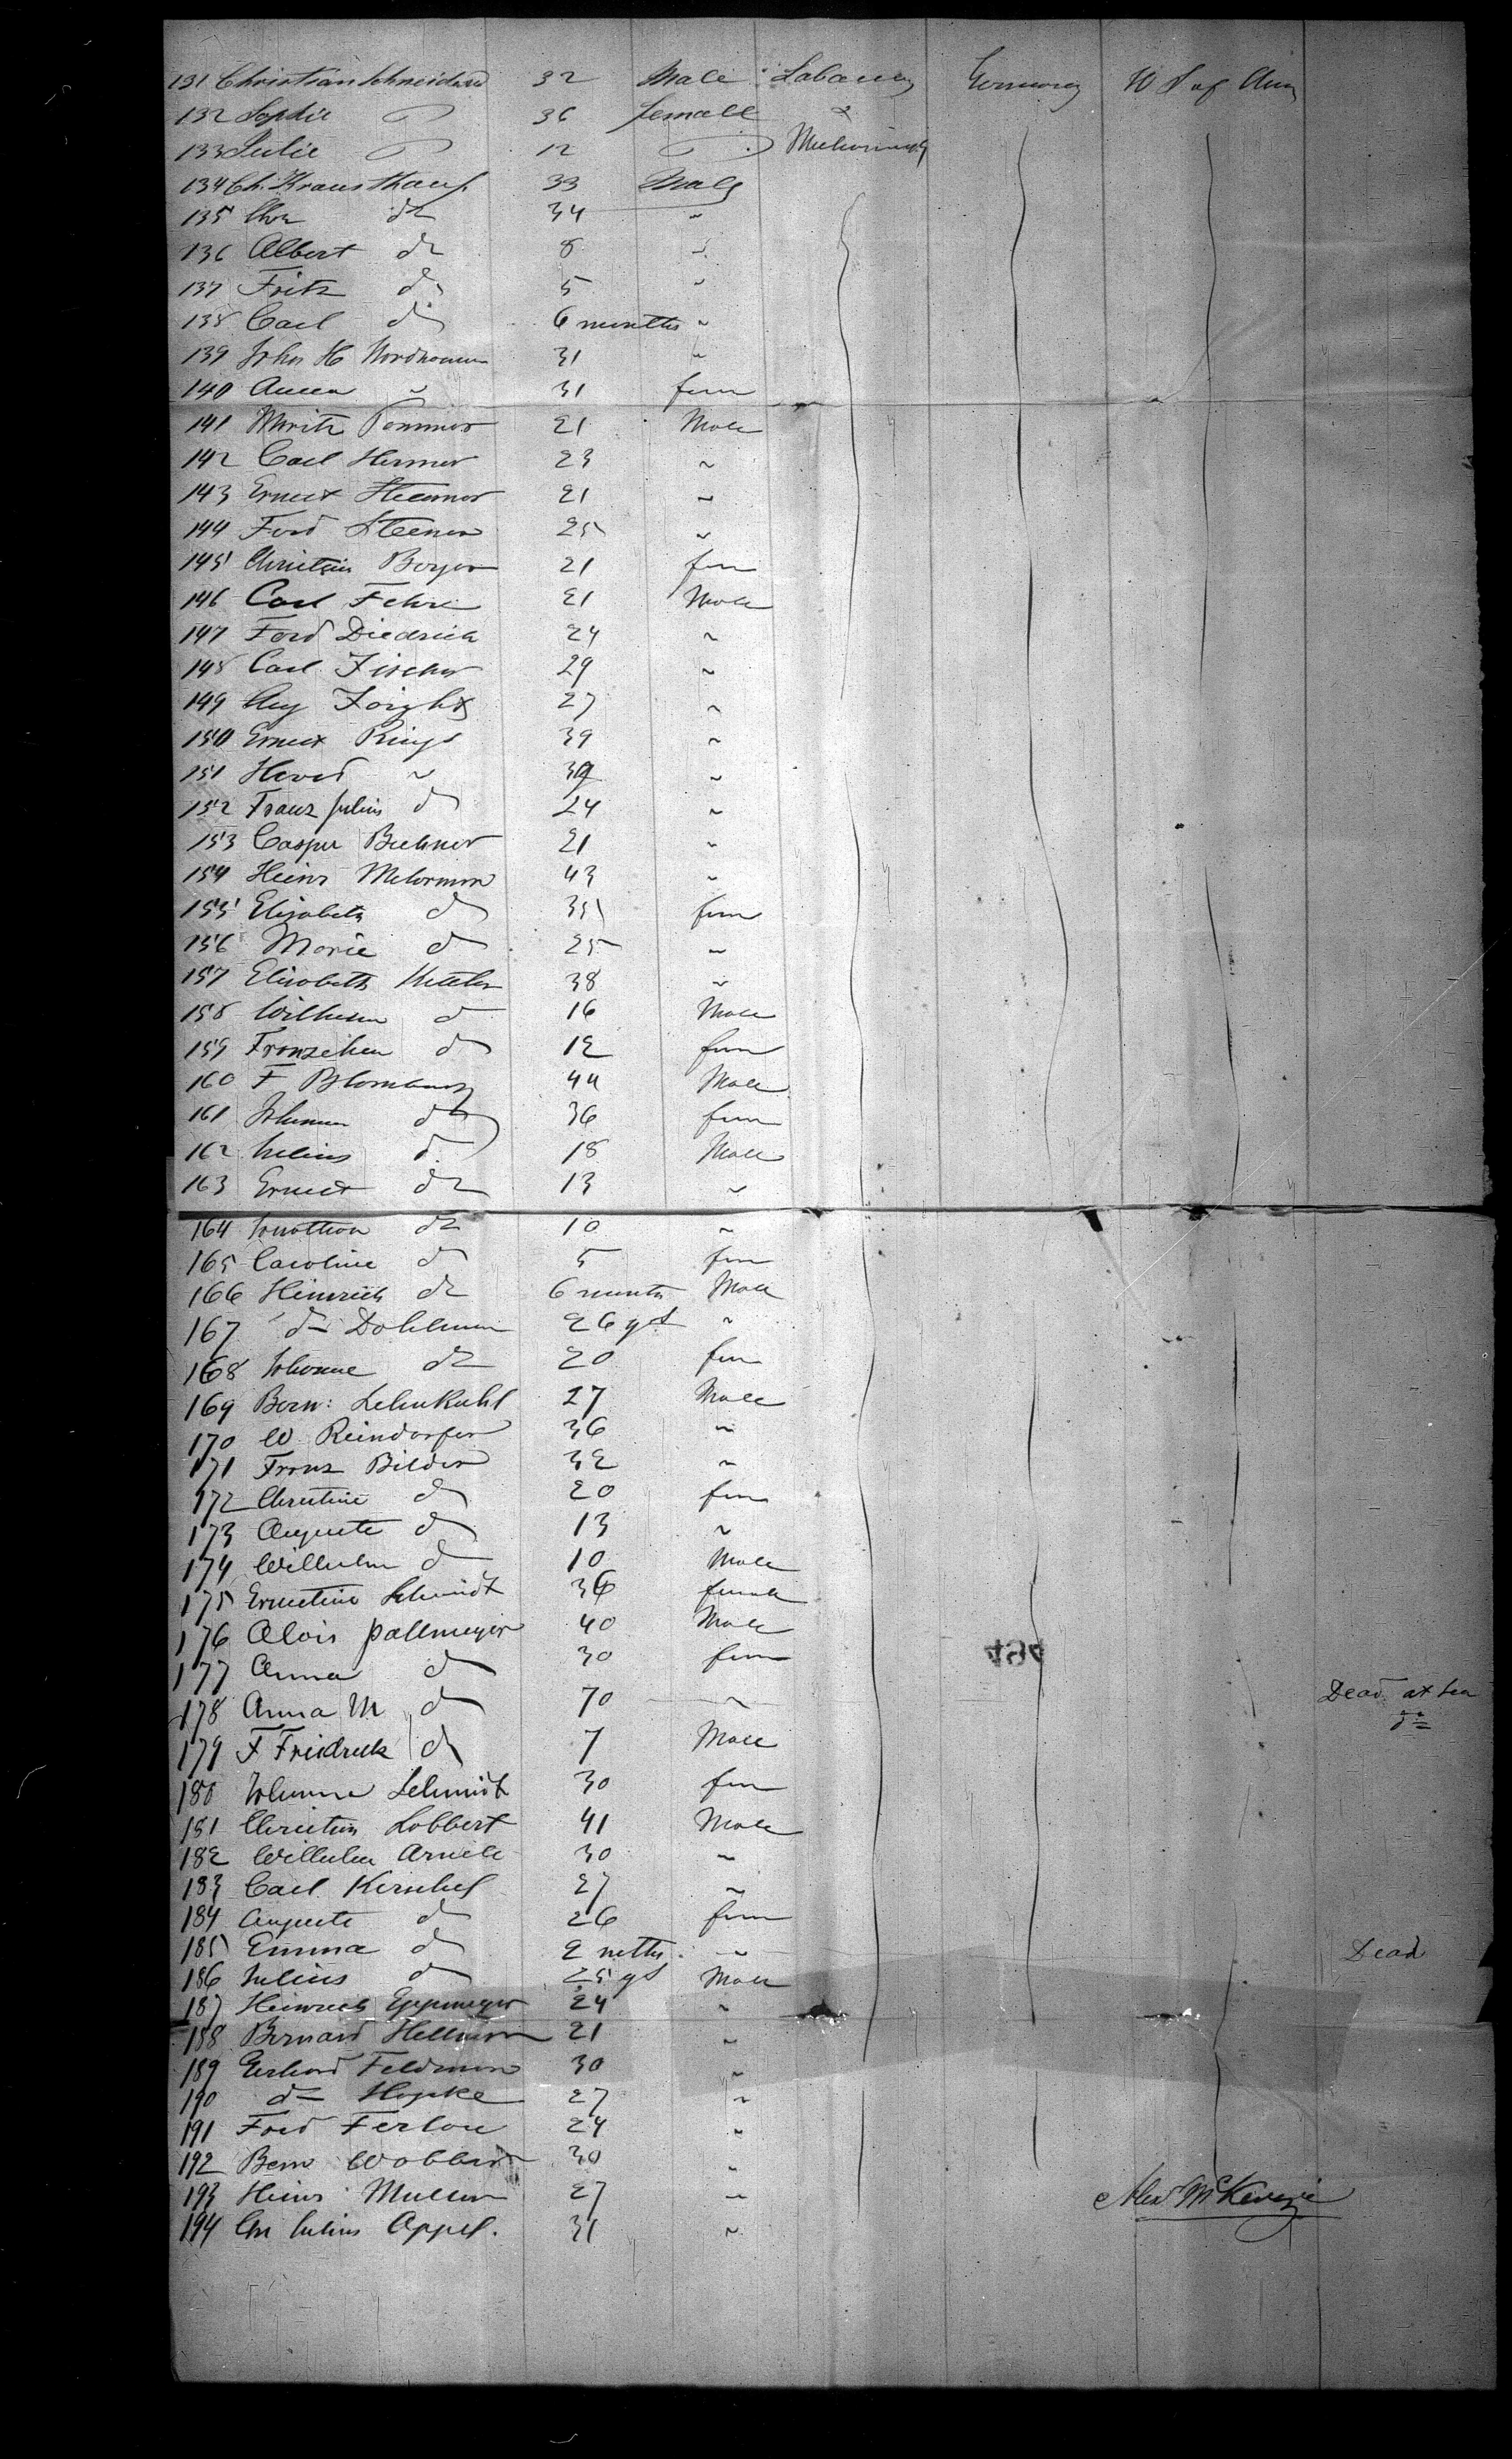 131 Christian Schneider 32 Male Labourer Germany U S of Am
132 Sophie do 36 female &
133 Julie do 12 do Mechanic
134 Ch. Kransthauf 33 Male
135 do 34 "
136 Albert do 8 "
137 Fritz do 5 "
138 Carl do 6 months "
139 John H Nordmann 31 "
140 Anna " 31 fem
141 Moritz Pommer 21 Male
142 Carl Hermer 23 "
143 Ernest 21 "
144 Ferd 25 "
145 Christein Berger 21 fem
146 Carl Fehre 21 Male
147 Ferd Diedrich 24 "
148 Carl Fischer 29 "
149 Aug Foight 27 "
150 Ernest Rings 39 "
151 Herd " 39 "
152 Franz Julius do 24 "
153 Casper Buchner 21 "
154 Heinr 43 "
155 Elisabeth do 35 fem
156 Marie do 25 "
157 Elisabeth 38 "
158 Wilhelm do 16 Male
159 Franzchen do 12 fem
160 F Blomberg 44 Male
161 do 36 fem
162 Julius do 18 Male
163 Ernest do 13 "
164 Jonathan do 10 "
165 Caroline do 5 fem
166 Heinrich do 6 months Male
167 do Dohlman 26 ys "
168 Johanne do 20 fem
169 Bern: Lehnkuhl 27 Male
170 W Reindorfer 36 "
171 Franz Bilder 32 "
172 Christine do 20 fem
173 Auguste do 13 "
174 Wilhelm do 10 Male
175 Ernestine Schmidt 36 female
176 Alois Pallmeyer 40 Male
177 Anna do 30 fem
178 Anna M do 70 " Dead at Sea
179 F Friedrick do 7 Male do
180 Johanne Schmidt 30 fem
181 Christian Lobbert 41 Male
182 Wilhelm 30 "
183 Carl Kerschel 27 "
184 Auguste do 26 fem
185 Emma do 2 mths " Dead
186 Julius do 25 ys Male
187 Heinrich Eppmeyer 24 "
188 Bernard Hellman 21 "
189 Gerhard Feldman 30 "
190 do Hopke 27 "
191 Fred Ferlou 24 "
192 Bern Wobber 30 "
193 Heinr Muller 27 "
194 Chr Julius Appel. 31 "
Alex McKenzie
494